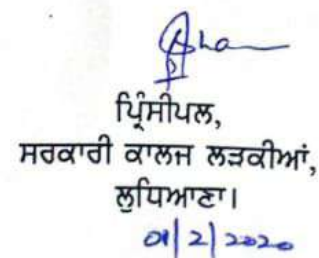 ਪ੍ਰਿੰਸੀਪਲ,
ਸਰਕਾਰੀ ਕਾਲਜ ਲੜਕੀਆਂ,
ਲੁਧਿਆਣਾ।
01/2/2020